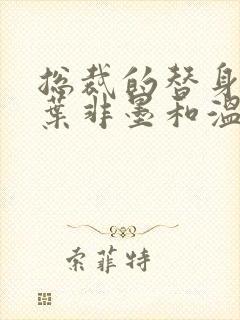 总裁的替身
葉非墨和溫
索菲特